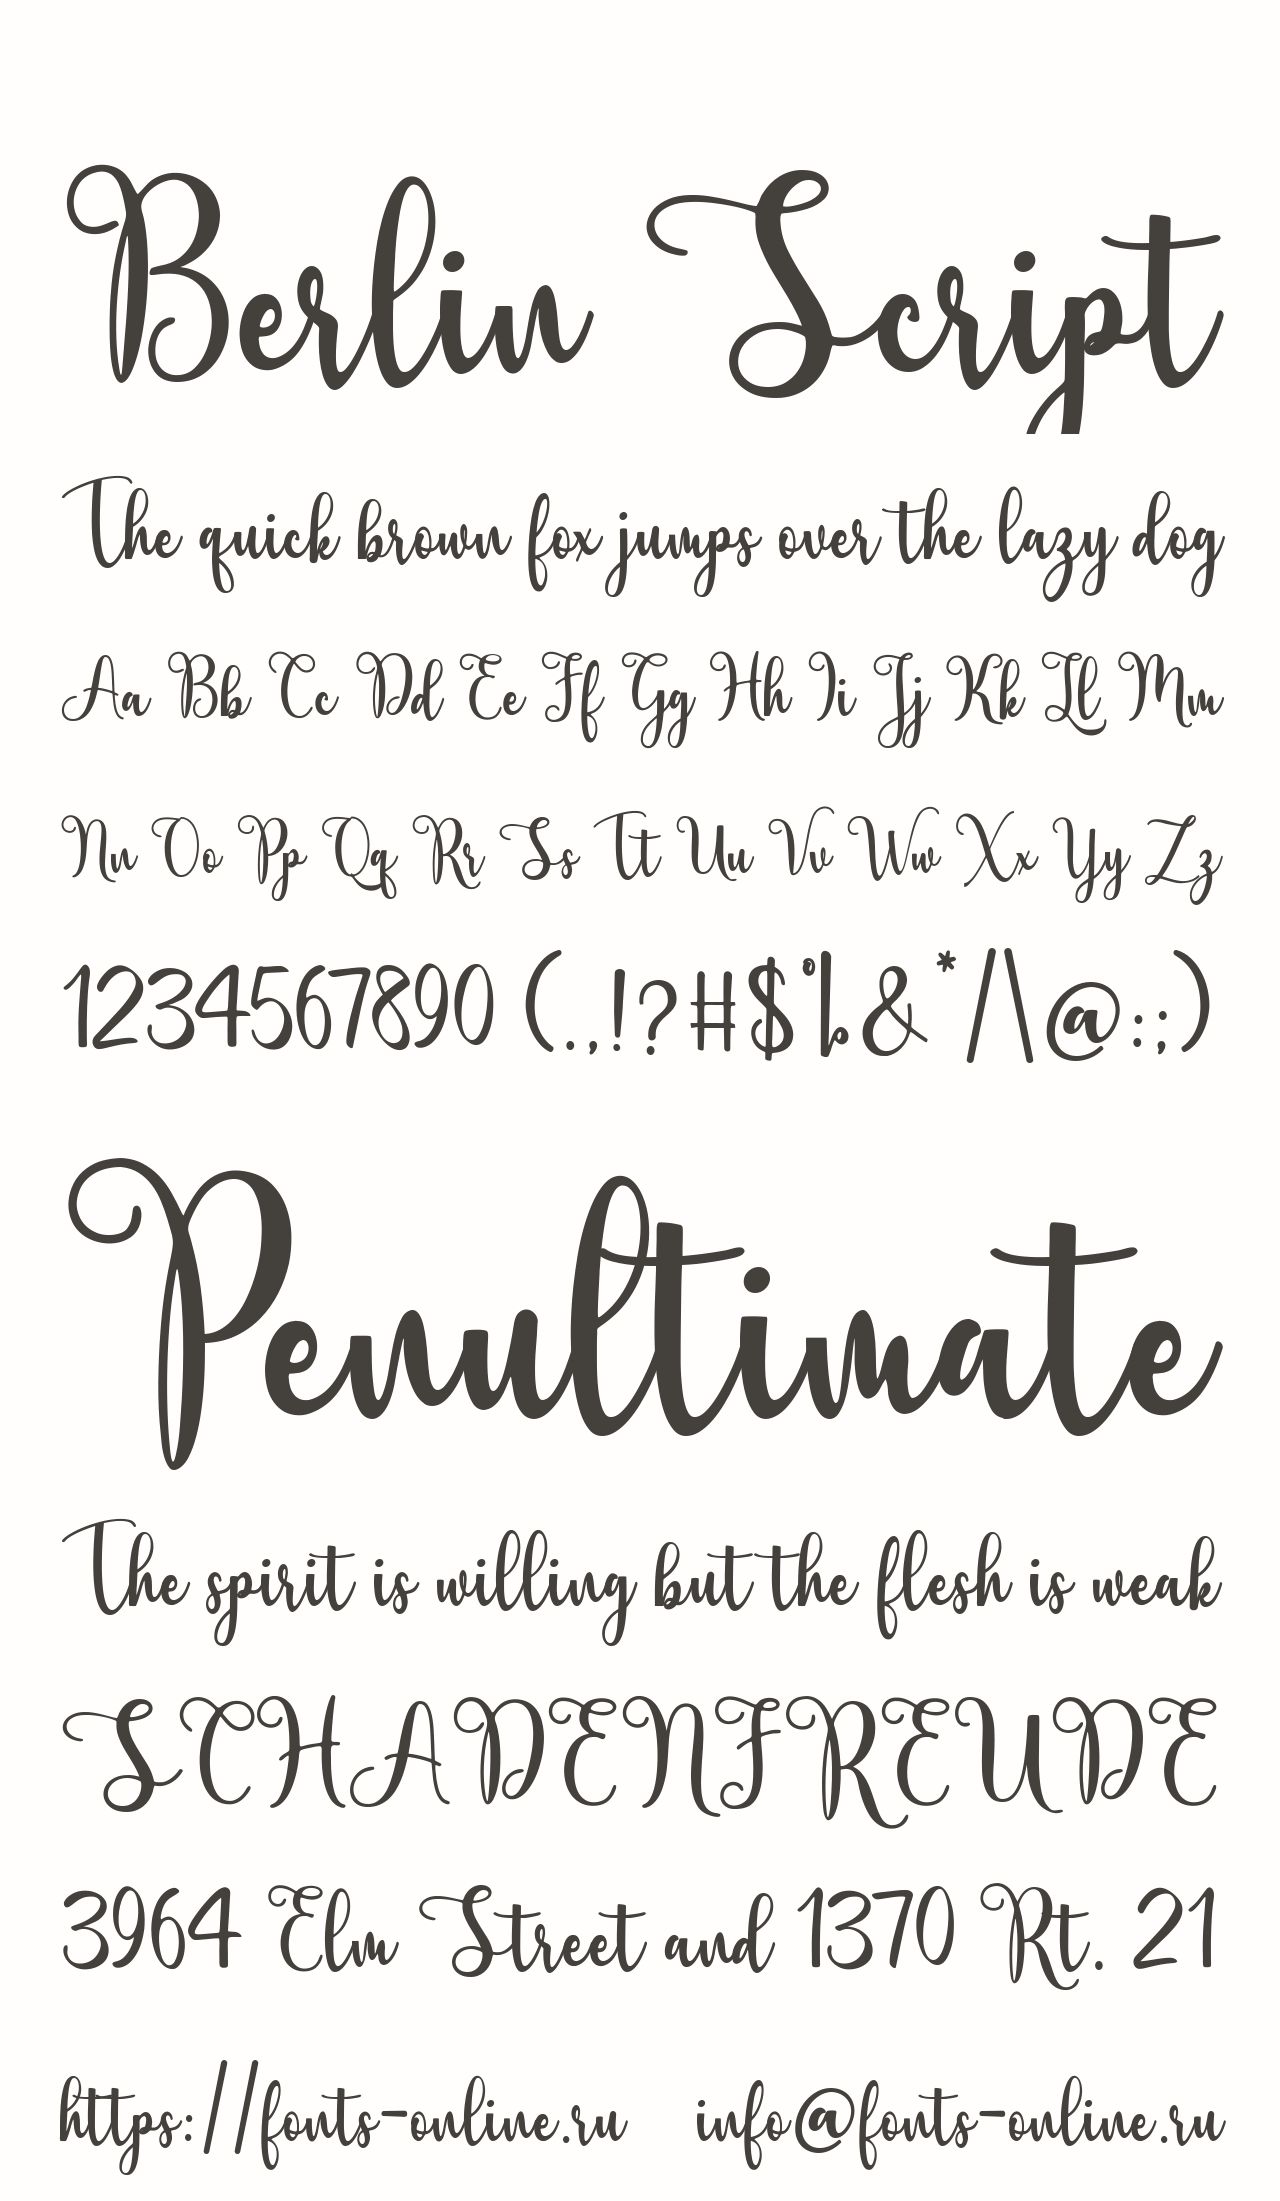 Berlin Script
The quick brown fox jumps over the lazy dog
Aa Bb Cc Dd Ee Ff Gg Hh Ii Jj Kk Ll Mm
Nn Oo Pp Qq Rr Ss Tt Uu Vv Ww Xx Yy Zz
1234567890 (.,!?#$%&*/\@:;)
Penultimate
The spirit is willing but the flesh is weak
SCHADENFREUDE
3964 Elm Street and 1370 Rt. 21
https://fonts-online.ru info@fonts-online.ru